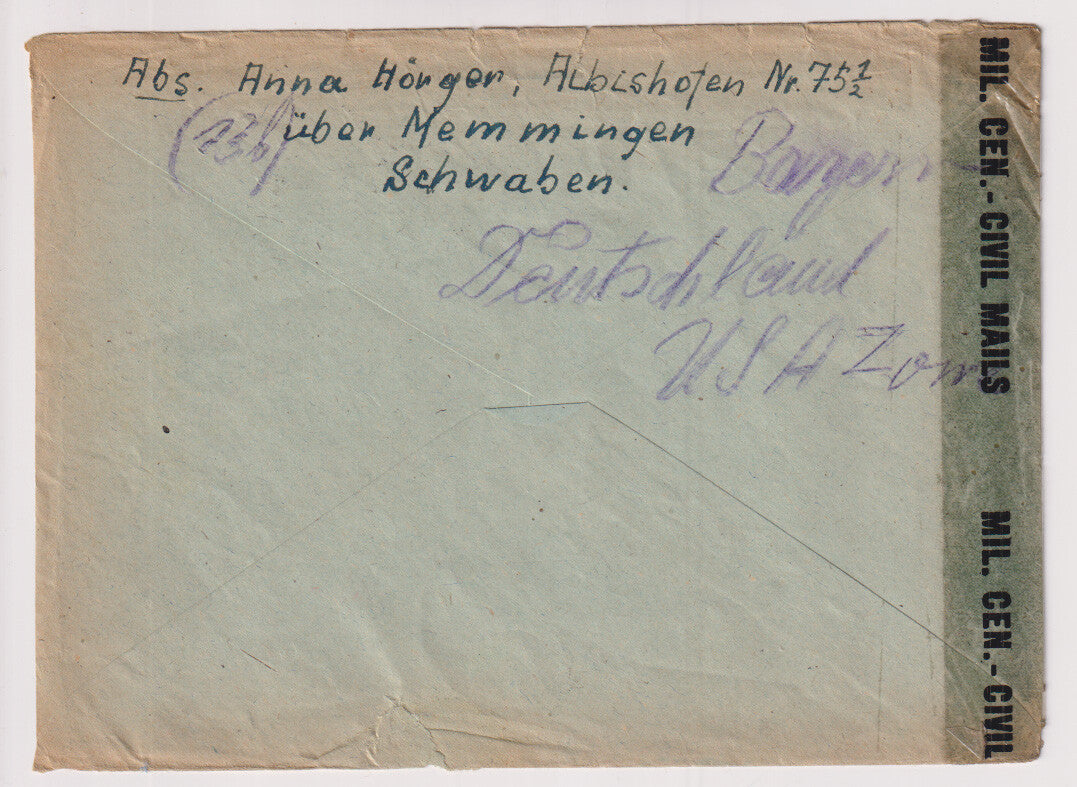 Abs. Anna Hörger, Albishofen Nr. 75 1/2
(13b) über Memmingen
Schwaben.
Bayern
Deutschland
USA Zone
MIL. CEN.- CIVIL MAILS
MIL. CEN.- CIVIL